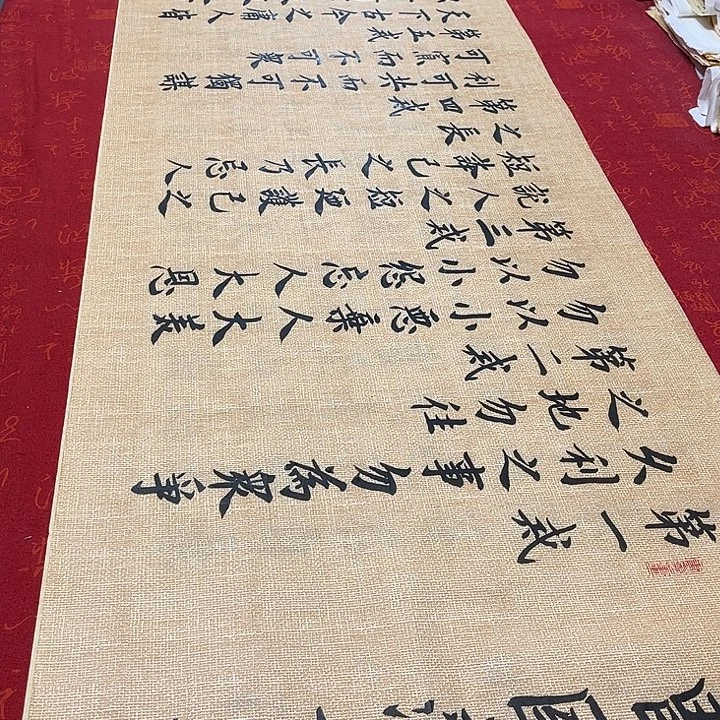 曾國
第一戒
久利之事勿為眾爭
之地勿往
第二戒
勿以小惡棄人大義
勿以小怨忘人大恩
第三戒
説人之短護己之
短誇己之長乃忌人
之長
第四戒
利可共而不可獨謀
可寡而不可眾
第五戒
天下古今之庸人皆